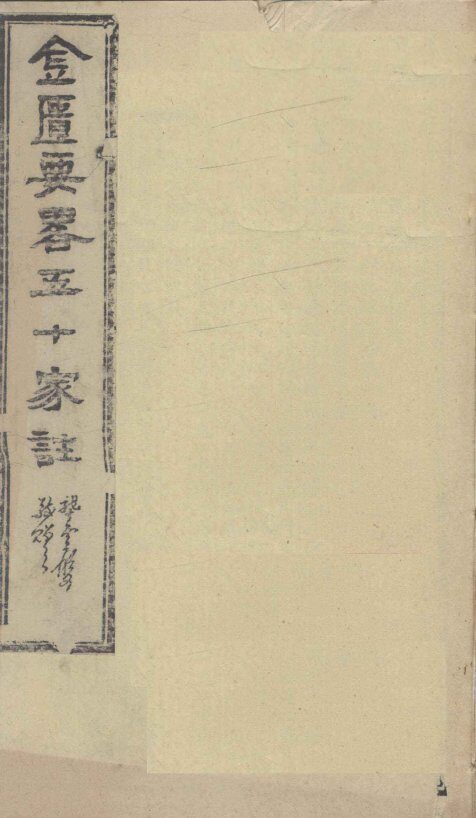 金匱要畧五十家註